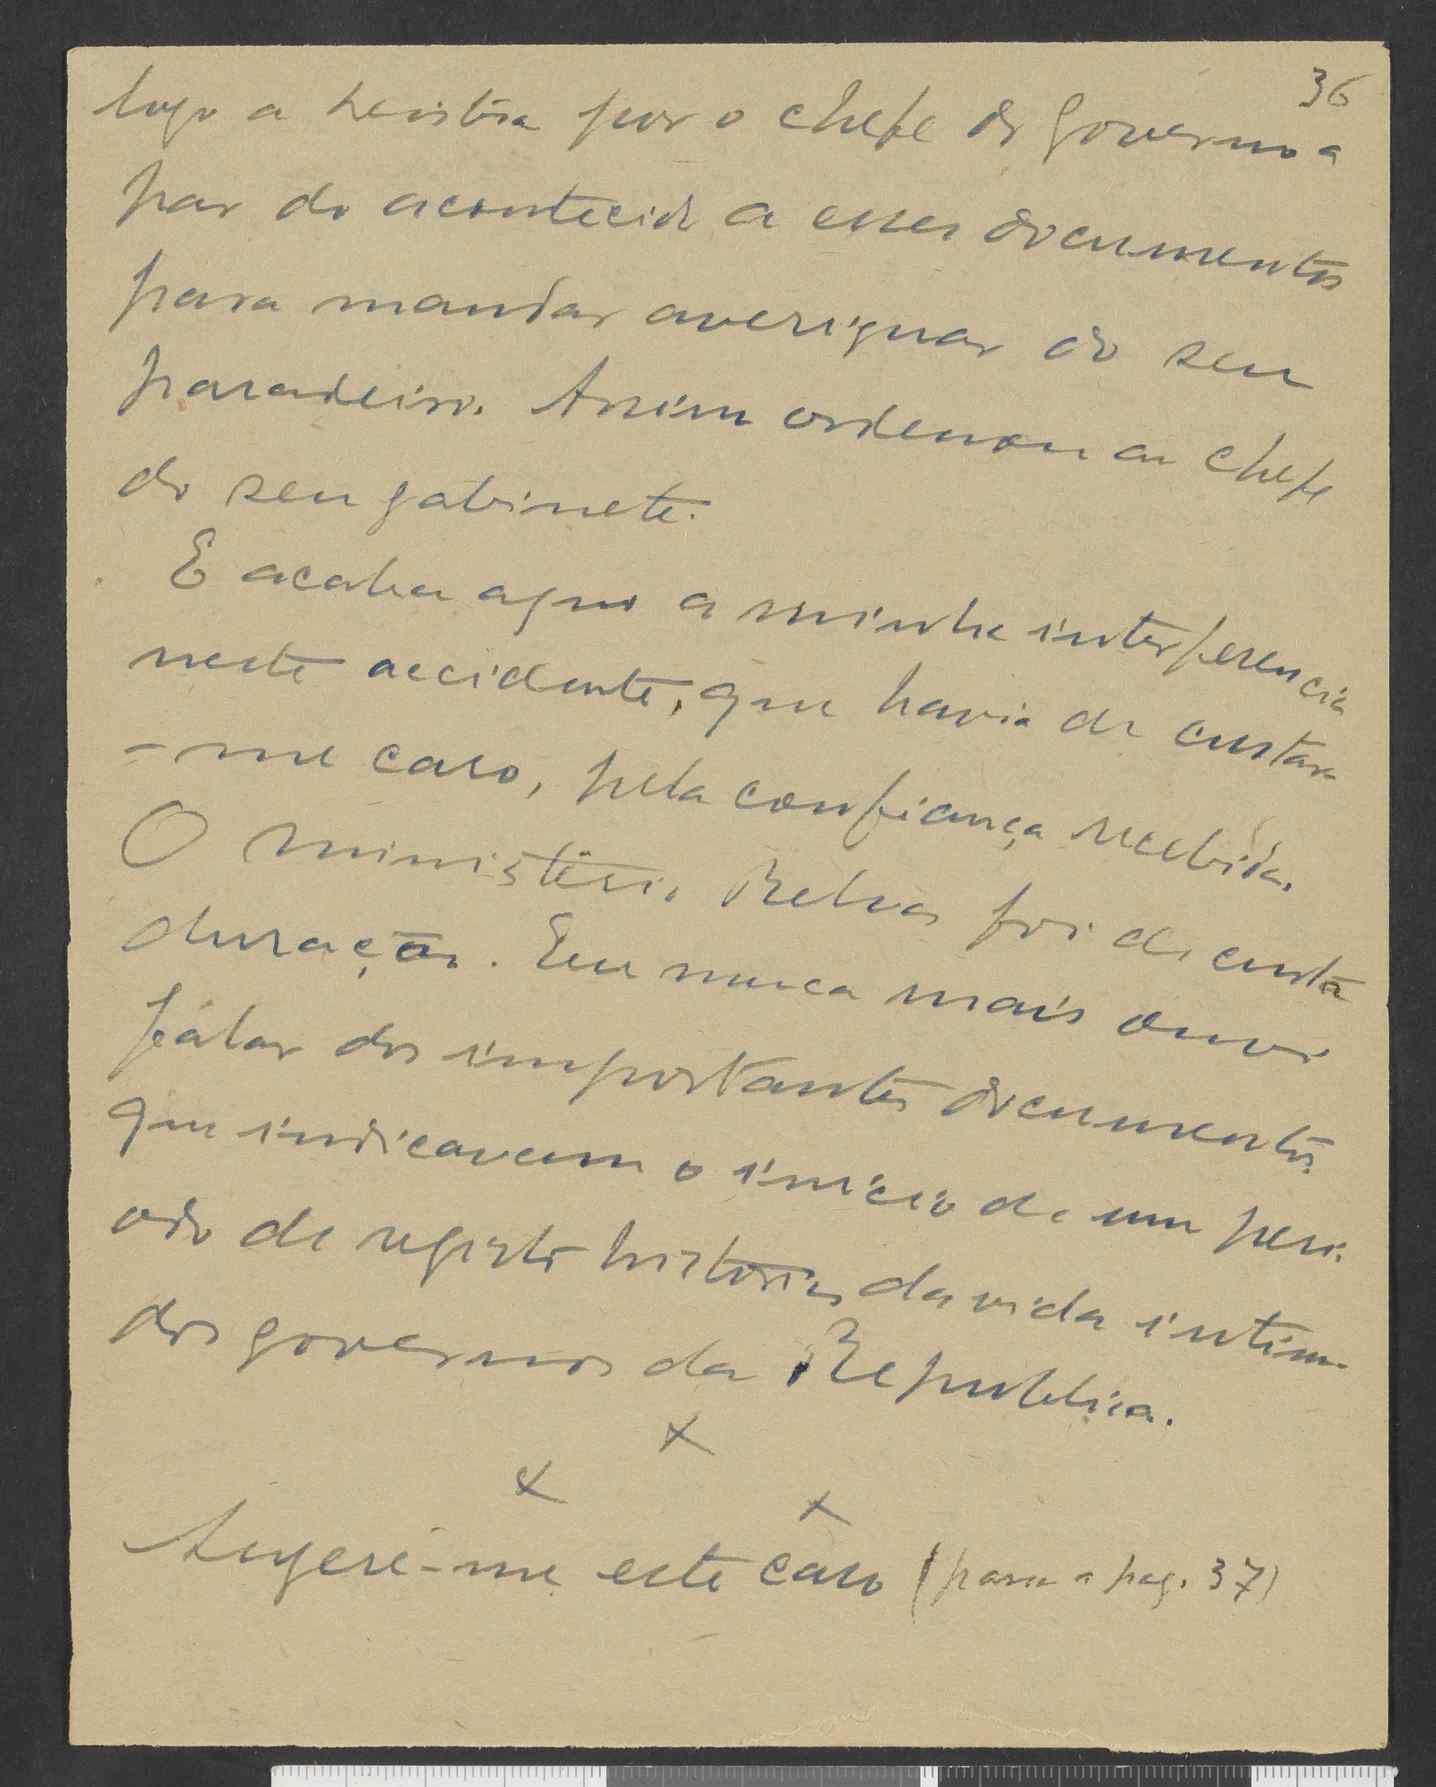 36
logo a por o chefe do Governo a
par do acontecido a esses documentos
para mandar averiguar do seu
paradeiro. Assim ordenou ao chefe
do seu gabinete.
E acaba aqui a minha interferencia
neste accidente, que havia de custar
-me caro, pela confiança recebida.
O ministério Relvas foi de curta
duração. Eu nunca mais ouvi
falar dos importantes documentos
que indicavam o inicio de um peri-
odo de registo historico da vida intima
dos governos da Republica.
x
x x
Sugere-me este caso (passa a pag. 37)